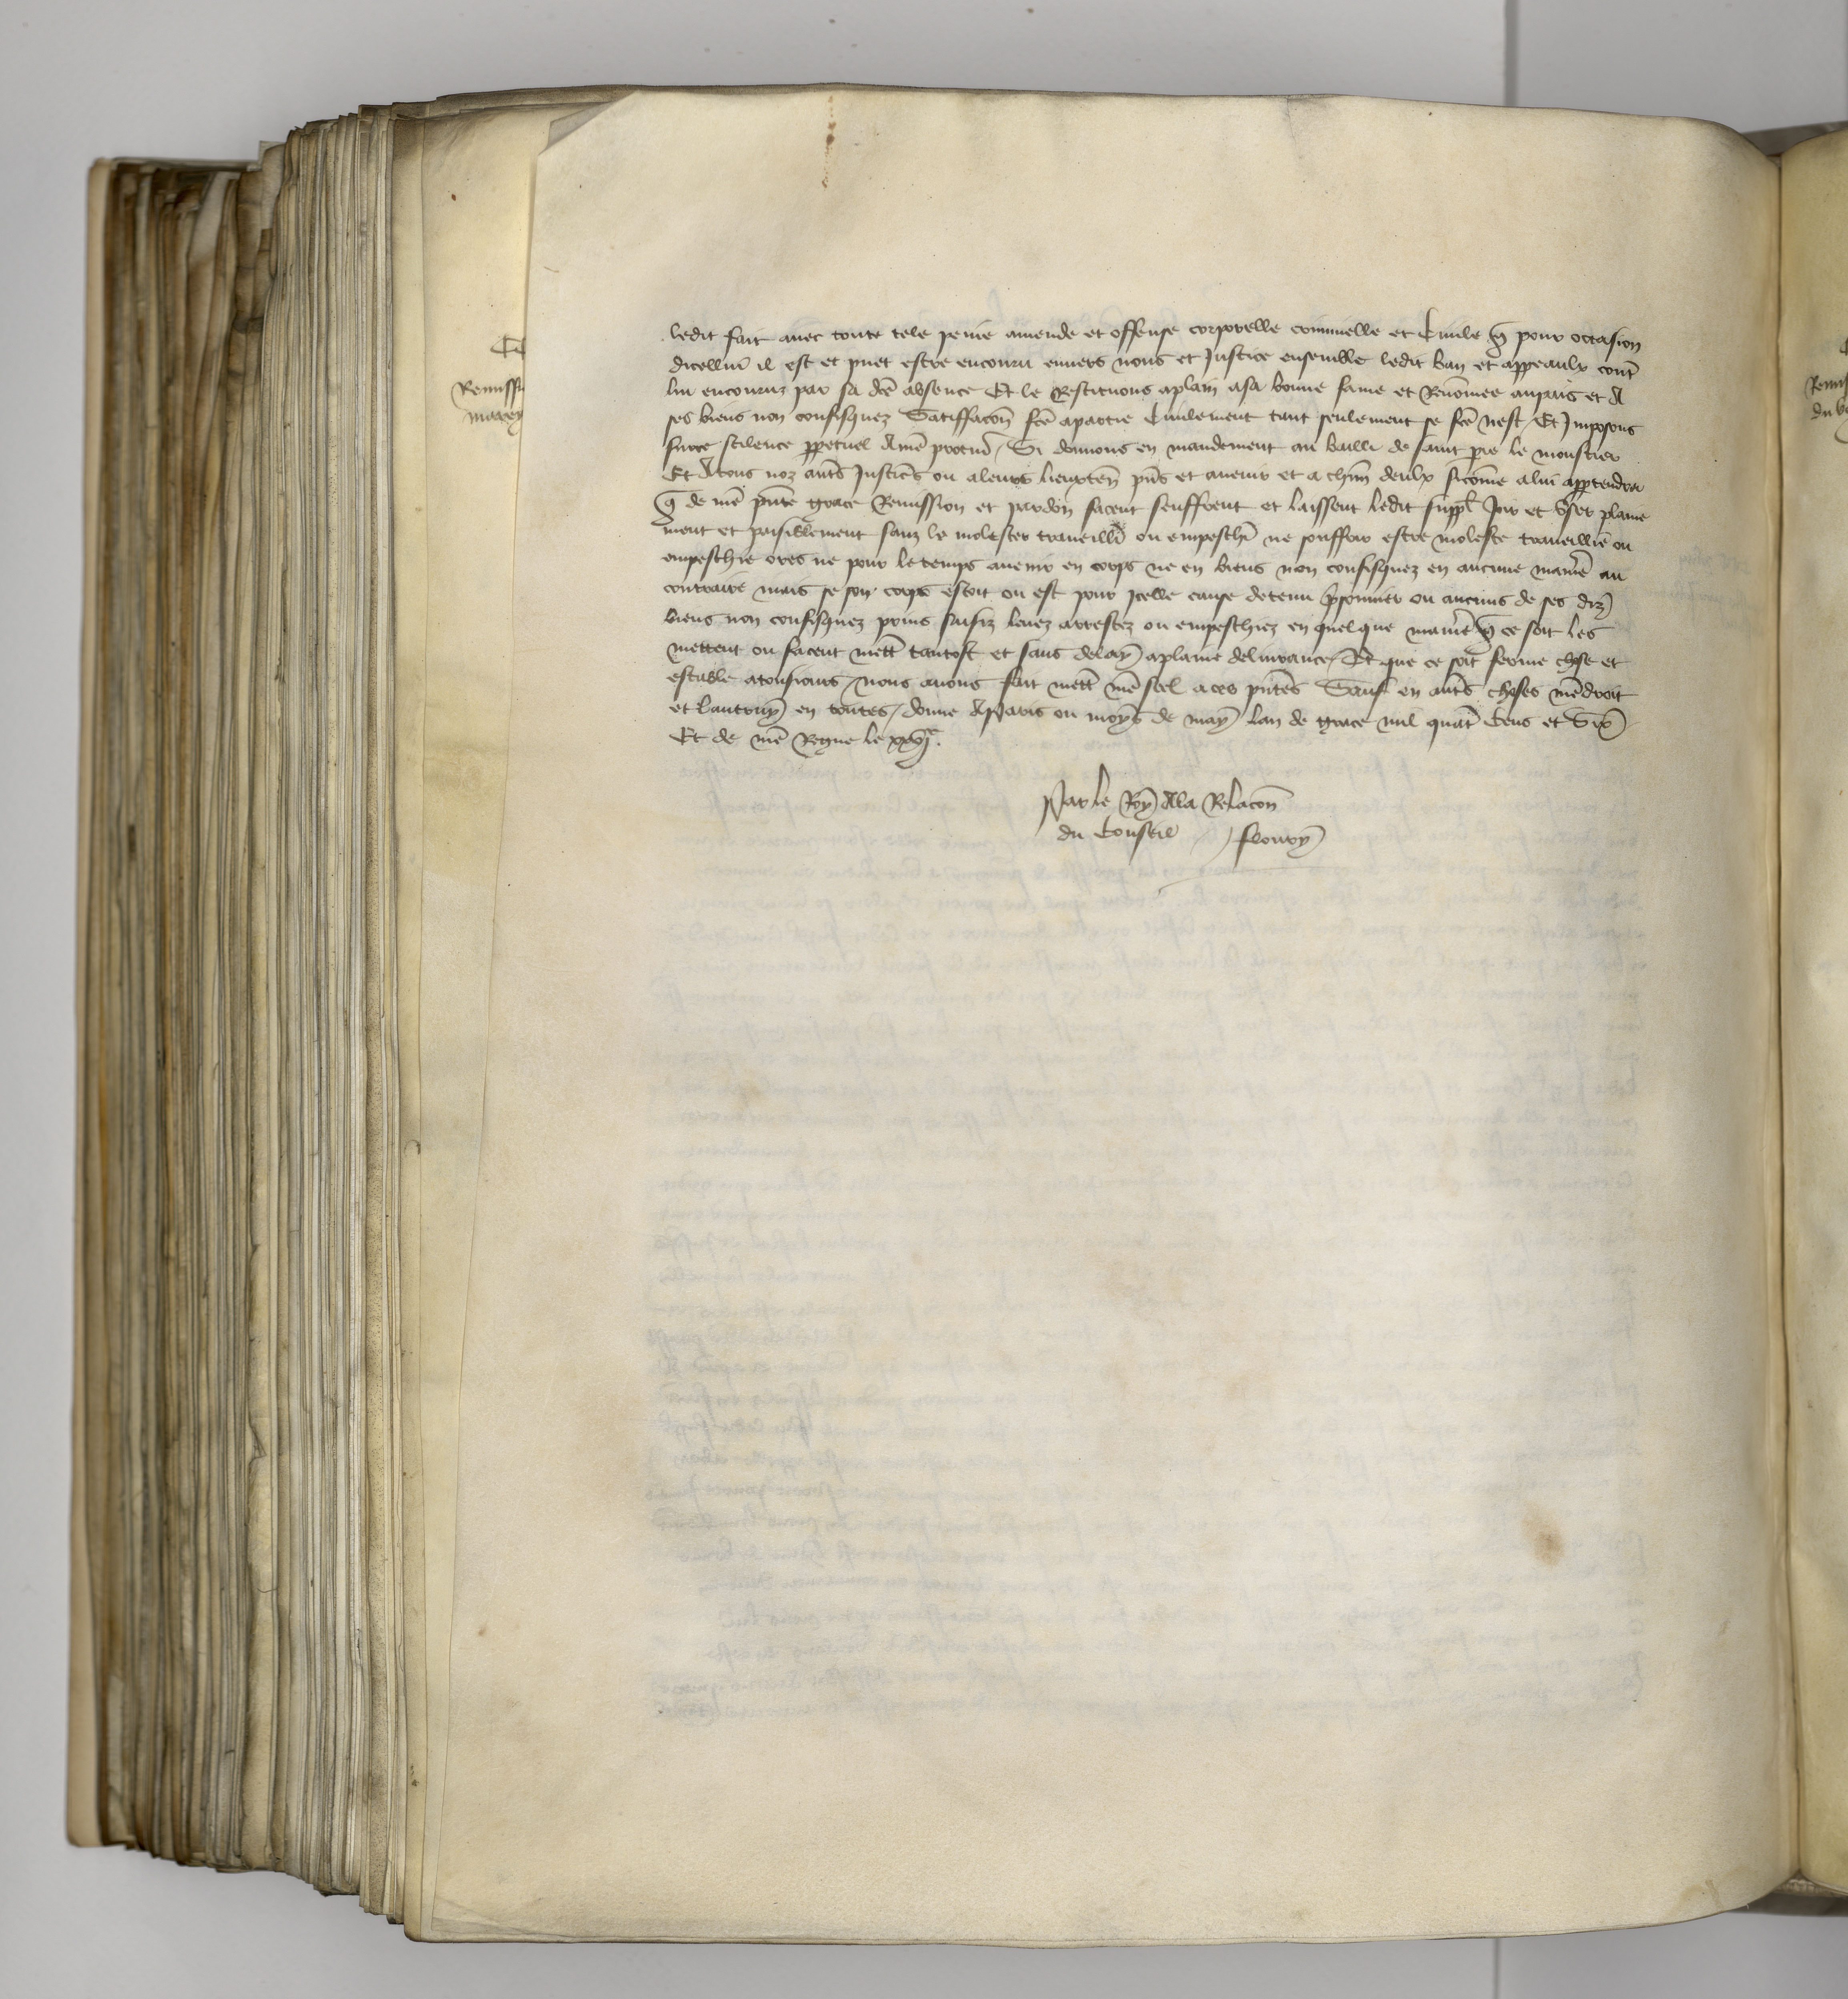 ledit fait avec toute tele peine amende et offense corporelle criminelle et Civile q̄ pour occasion
dicellui il est et puet estre encouru envers nous et Justice ensemble ledit ban et appeaulx contr̄
lui encouruz par sa dcē absence Et le Restituons aplain asa bonne fame et Renōmee aupais et A
ses biens non confisquez Satiffacōn fcē apartie Civilement tant seulement se fcē nest Et Jmposons
surce scilence ꝑpetuel Anrē procur̄ Si donnons en mandement au bailli de saint pr̄e le moustier
Et Atous noz autr̄s Justic̄es ou aleurs lieuxten̄ pn̄s et avenir et a chūn deulx sicōme alui appartendra
q̄ de nrē pn̄te grace Remission et pardon facent seuffrent et laissent ledit suppl̄ Joir et user plaine
ment et paisiblement sanz le molester traveillr̄ ou empeschr̄ ne souffrir estre moleste traveillié ou
empeschie ores ne pour le temps avenir en corps ne en biens non confisquez en aucune manr̄e au
contraire mais se son corps estoit ou est pour jcelle cause detenu p̄sonnier ou aucuns de ses diz
biens non confisquez prins saisiz levez arrestez ou empeschiez en quelque manr̄e q̄ ce soit les
mettent ou facent mettr̄ tantost et sans delay aplaine delivrance Et que ce soit ferme chose et
estable atousjours nous avons fait mettr̄ nrē seel aces pn̄tes Sauf en autr̄s choses nrē droit
et lautruy en toutes donne AParis ou moys de may lan de grace mil quatr̄ Cens et Six
Et de nrē Regne le xxvj.e
Par le Roy Ala Relacōn
du Conseil
floury
Remissi